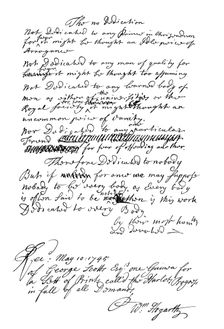 The no Dedication
Not Dedicated to any Prince in Christendom
for fear it might be thought an Idle piece of
Arrogance
Not Dedicated to any man of quality for
fear it might be thought too assuming
Not Dedicated to any learned body of
men, as either of the universities or the
Royal Society, for fear it might be thought an
uncommon piece of vanity.
Nor Dedicated to any particular
Friend for fear of offending another.
Therefore Dedicated to nobody
But if for once we may suppose
nobody to be every body, as Every body
is often said to be nobody, then is this work
Dedicated to every Body
by their most humble
and devoted
Rec. May 10. 1745
of George Scott Esq. one Guinea for
a Sett of Prints called the Harlots Progress
in full of all Demands
Wm Hogarth